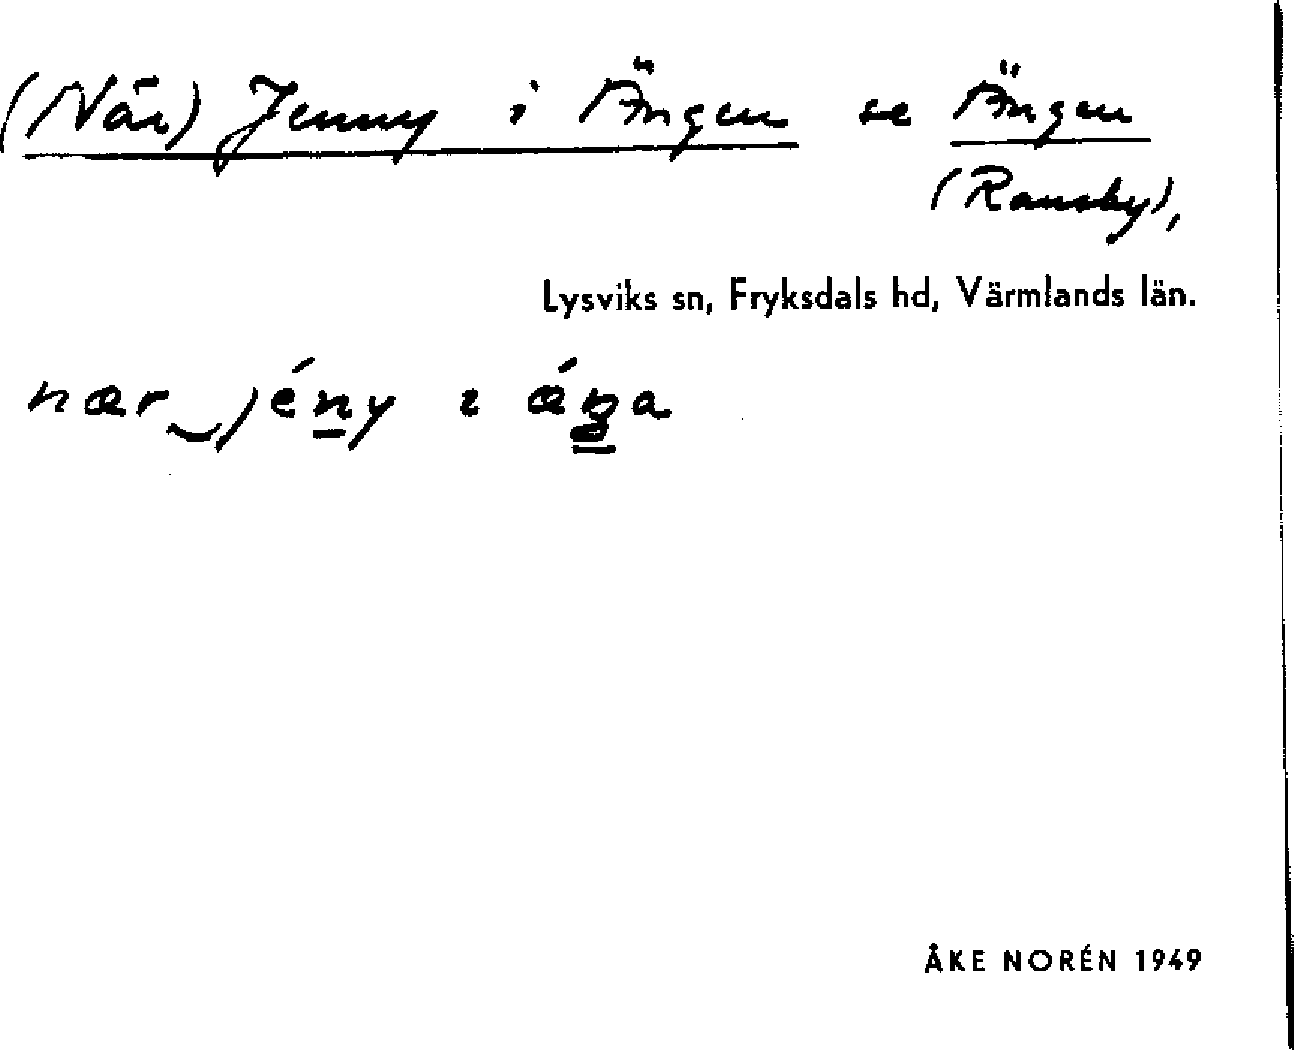 (När) Jenny i Ängen se Ängen
(Ransby),
Lysviks sn, Fryksdals hd, Värmlands län.
nær‿jény ɩ ǽŋa
ÅKE NORÉN 1949